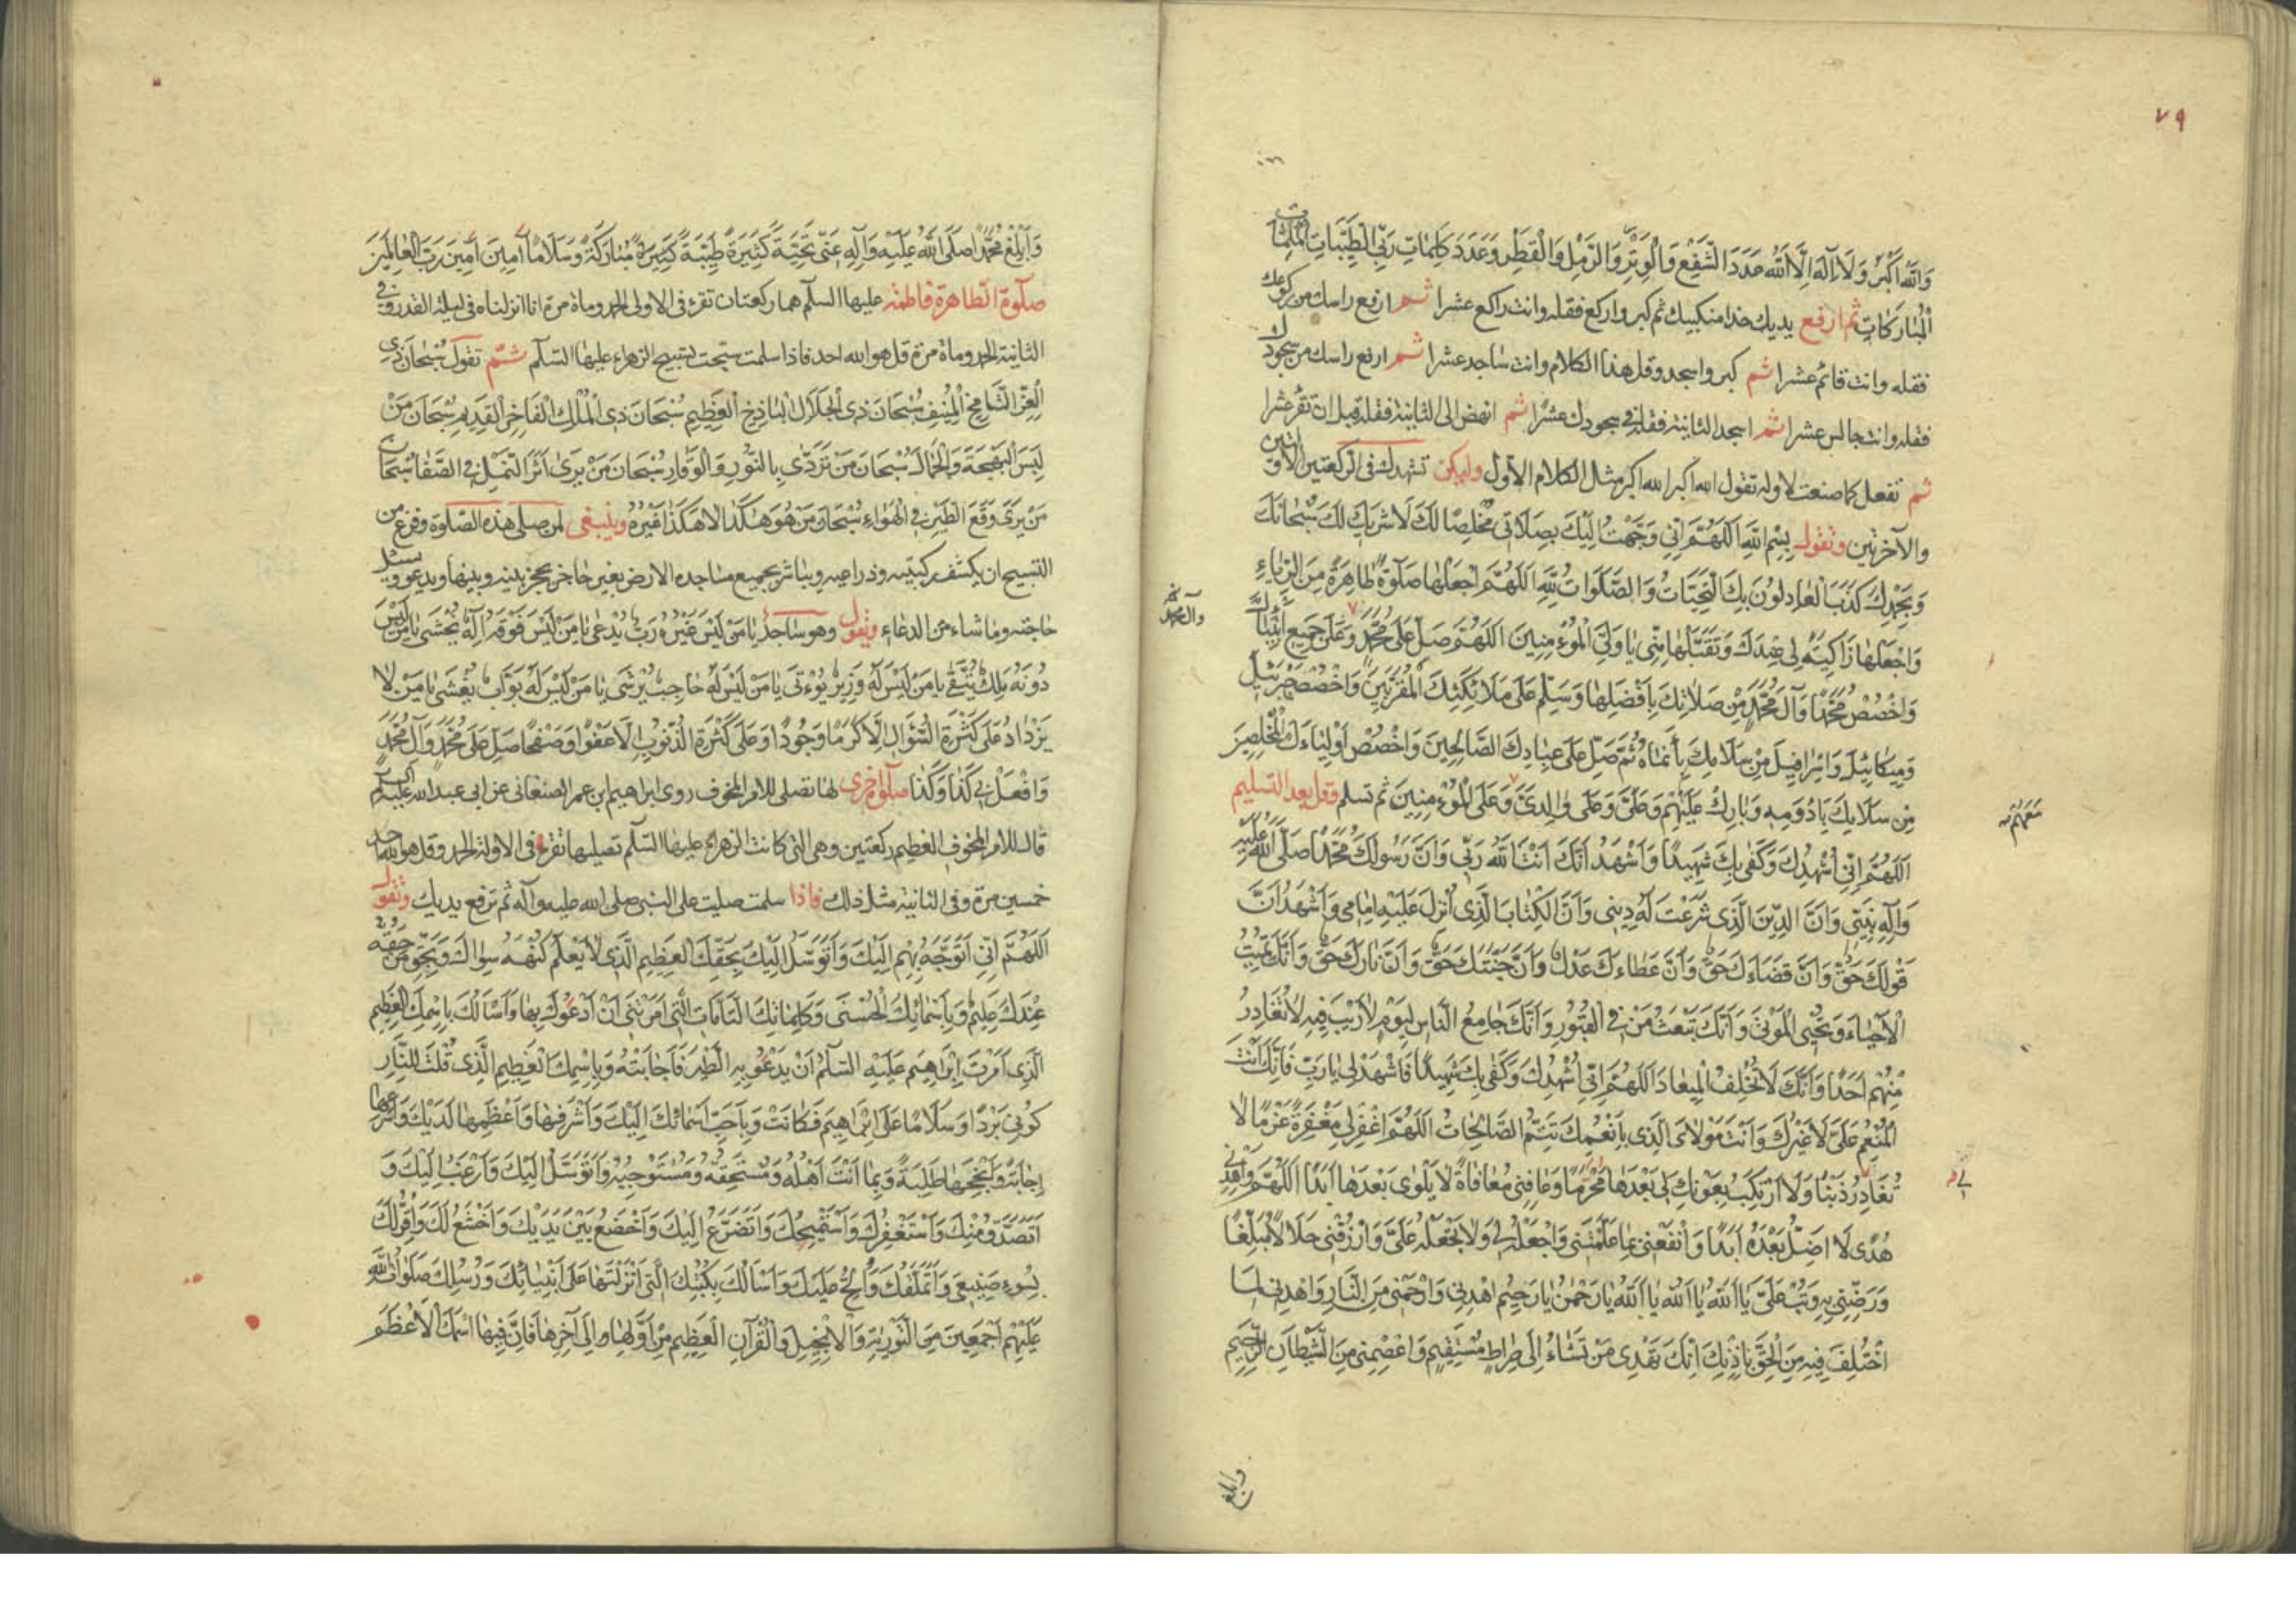 ٧٩
وَاللّٰهُ اَكْبَرُ وَلَا اِلٰهَ اِلَّا اللّٰهُ عَدَدَ الشَّفْعِ وَالْوَتْرِ وَالرَّمْلِ وَالْقَطْرِ وَعَدَدَ كَلِمَاتِ رَبِّي الطَّيِّبَاتِ
الْمُبَارَكَاتِ ثم ارفع يديك حذا منكبيك ثم كبر واركع فقله وانت راكع عشرا ثم ارفع راسك من ركوعك
فقله وانت قائم عشرا ثم كبر واسجد وقل هذا الكلام وانت ساجد عشرا ثم ارفع راسك من سجودك
فقله وانت جالس عشرا ثم اسجد الثانية فقله في سجودك عشرا ثم انهض الى الثانية فقله قبل ان تقرء عشرا
ثم تفعل كما صنعت لاوله تقول الله اكبر الله اكبر مثل الكلام الاول وليكن تشهدك في الركعتين الاولتين
والآخرتين وتقول بِسْمِ اللّٰهِ اَللّٰهُمَّ اِنّي وَجَّهْتُ اِلَيْكَ بِصَلَاتي مُخْلِصًا لَكَ لَا شَرِيكَ لَكَ سُبْحَانَكَ
وَبِحَمْدِكَ كَذَبَ الْعَادِلُونَ بِكَ التَّحِيَّاتُ وَالصَّلَوَاتُ لِلّٰهِ اَللّٰهُمَّ اجْعَلْهَا صَلٰوةً طَاهِرَةً مِنَ الرِّيَاءِ
وَاجْعَلْهَا زَاكِيَةً لي عِنْدَكَ وَتَقَبَّلْهَا مِنّي يَا وَلِيَّ الْمُؤْمِنِينَ اَللّٰهُمَّ صَلِّ عَلَى مُحَمَّدٍ وَعَلَى جَمِيعِ
وَاخْصُصْ مُحَمَّدًا وَآلَ مُحَمَّدٍ مِنْ صَلَاتِكَ بِاَفْضَلِهَا وَسَلِّمْ عَلَى مَلَائِكَتِكَ الْمُقَرَّبِينَ وَاخْصُصْ جَبْرَئِيلَ
وَمِيكَائِيلَ وَاِسْرَافِيلَ مِنْ سَلَامِكَ بِأَنْمَاهُ ثُمَّ صَلِّ عَلَى عِبَادِكَ الصَّالِحِينَ وَاخْصُصْ اَوْلِيَاءَكَ الْمُخْلِصِينَ
مِنْ سَلَامِكَ بِاَدْوَمِهِ وَبَارِكْ عَلَيْهِمْ وَعَلَيَّ وَعَلَى وَالِدَيَّ وَعَلَى الْمُؤْمِنِينَ ثم تسلم فقل بعد التسليم
اَللّٰهُمَّ اِنّي اُشْهِدُكَ وَكَفٰى بِكَ شَهِيدًا وَاَشْهَدُ اَنَّكَ اَنْتَ اللّٰهُ رَبّي وَاَنَّ رَسُولَكَ مُحَمَّدًا صَلَّى اللّٰهُ عَلَيْهِ
وَآلِهِ نَبِيّي وَاَنَّ الدِّينَ الَّذي شَرَعْتَ لَهُ دِيني وَاَنَّ الْكِتَابَ الَّذي اُنْزِلَ عَلَيْهِ اِمَامي وَاَشْهَدُ اَنَّ
قَوْلَكَ حَقٌّ وَاَنَّ قَضَاءَكَ حَقٌّ وَاَنَّ عَطَاءَكَ عَدْلٌ وَاَنَّ جَنَّتَكَ حَقٌّ وَاَنَّ نَارَكَ حَقٌّ وَاَنَّكَ تُمِيتُ
الْاَحْيَاءَ وَتُحْيِي الْمَوْتٰى وَاَنَّكَ تَبْعَثُ مَنْ في الْقُبُورِ وَاَنَّكَ جَامِعُ النَّاسِ لِيَوْمٍ لَا رَيْبَ فِيهِ لَا تُغَادِرُ
مِنْهُمْ اَحَدًا وَاَنَّكَ لَا تُخْلِفُ الْمِيعَادَ اَللّٰهُمَّ اِنّي اُشْهِدُكَ وَكَفٰى بِكَ شَهِيدًا فَاشْهَدْ لي يَا رَبِّ فَاِنَّكَ اَنْتَ
الْمُنْعِمُ عَلَيَّ لَا غَيْرُكَ وَاَنْتَ مَوْلَايَ الَّذي بِاَنْعُمِكَ تَتِمُّ الصَّالِحَاتُ اَللّٰهُمَّ اغْفِرْ لي مَغْفِرَةً عَزْمًا لَا
تُغَادِرُ ذَنْبًا وَلَا اَرْتَكِبُ بِعَوْنِكَ لي بَعْدَهَا مُحَرَّمًا وَعَافِني مُعَافَاةً لَا بَلْوٰى بَعْدَهَا اَبَدًا اَللّٰهُمَّ وَاهْدِني
هُدًى لَا اَضِلُّ بَعْدَهُ اَبَدًا وَانْفَعْني بِمَا عَلَّمْتَني وَاجْعَلْهُ لي وَلَا تَجْعَلْهُ عَلَيَّ وَارْزُقْني حَلَالًا مُبَلِّغًا
وَرَضِّني بِهِ وَتُبْ عَلَيَّ يَا اَللّٰهُ يَا اَللّٰهُ يَا اَللّٰهُ يَا رَحْمٰنُ يَا رَحِيمُ اهْدِني وَارْحَمْني مِنَ النَّارِ وَاهْدِني لِمَا
اخْتُلِفَ فِيهِ مِنَ الْحَقِّ بِاِذْنِكَ اِنَّكَ تَهْدي مَنْ تَشَاءُ اِلٰى صِرَاطٍ مُسْتَقِيمٍ وَاعْصِمْني مِنَ الشَّيْطَانِ الرَّجِيمِ
وابلغ
وَاَبْلِغْ مُحَمَّدًا صَلَّى اللّٰهُ عَلَيْهِ وَآلِهِ عَنّي تَحِيَّةً كَثِيرَةً طَيِّبَةً كَثِيرَةً مُبَارَكَةً وَسَلَامًا آمِينَ آمِينَ رَبَّ الْعَالَمِينَ
صلوة الطاهرة فاطمة عليها السلم هما ركعتان تقرء في الاولى الحمد ومأة مرة انا انزلناه في ليلة القدر وفي
الثانية الحمد ومأة مرة قل هو الله احد فاذا سلمت سبحت تسبيح الزهراء عليها السلم ثم تقول سُبْحَانَ ذِي
الْعِزِّ الشَّامِخِ الْمُنِيفِ سُبْحَانَ ذِي الْجَلَالِ الْبَاذِخِ الْعَظِيمِ سُبْحَانَ ذِي الْمُلْكِ الْفَاخِرِ الْقَدِيمِ سُبْحَانَ مَنْ
لَبِسَ الْبَهْجَةَ وَالْجَمَالَ سُبْحَانَ مَنْ تَرَدّٰى بِالنُّورِ وَالْوَقَارِ سُبْحَانَ مَنْ يَرٰى اَثَرَ النَّمْلِ في الصَّفَا سُبْحَانَ
مَنْ يَرٰى وَقْعَ الطَّيْرِ في الْهَوَاءِ سُبْحَانَ مَنْ هُوَ هٰكَذَا لَا هٰكَذَا غَيْرُهُ وينبغي لمن صلى هذه الصلوة وفرغ من
التسبيح ان يكشف ركبتيه وذراعيه ويباشر بجميع مساجده الارض بغير حاجز يحجز بينه وبينها ويدعو ويسئل
حاجته وما شاء من الدعاء وتقول وهو ساجد يَا مَنْ لَيْسَ غَيْرَهُ رَبٌّ يُدْعٰى يَا مَنْ لَيْسَ فَوْقَهُ اِلٰهٌ يُخْشٰى يَا مَنْ لَيْسَ
دُونَهُ مَلِكٌ يُتَّقٰى يَا مَنْ لَيْسَ لَهُ وَزِيرٌ يُؤْتٰى يَا مَنْ لَيْسَ لَهُ حَاجِبٌ يُرْشٰى يَا مَنْ لَيْسَ لَهُ بَوَّابٌ يُغْشٰى يَا مَنْ لَا
يَزْدَادُ عَلَى كَثْرَةِ السُّؤَالِ اِلَّا كَرَمًا وَجُودًا وَعَلَى كَثْرَةِ الذُّنُوبِ اِلَّا عَفْوًا وَصَفْحًا صَلِّ عَلَى مُحَمَّدٍ وَآلِ مُحَمَّدٍ
وَافْعَلْ بي كَذَا وَكَذَا صلوة اخرى لها تصلى للامر المخوف روى ابراهيم ابن عمر الصنعاني عن ابي عبد الله عليه السلم
قال للامر المخوف العظيم ركعتين وهي التي كانت الزهراء عليها السلم تصليها تقرء في الاولة الحمد وقل هو الله احد
خمسين مرة وفي الثانية مثل ذلك فاذا سلمت صليت على النبي صلى الله عليه وآله ثم ترفع يديك وتقول
اَللّٰهُمَّ اِنّي اَتَوَجَّهُ بِهِمْ اِلَيْكَ وَاَتَوَسَّلُ اِلَيْكَ بِحَقِّكَ الْعَظِيمِ الَّذي لَا يَعْلَمُ كُنْهَهُ سِوَاكَ وَبِحَقِّ مَنْ حَقُّهُ
عِنْدَكَ عَظِيمٌ وَبِاَسْمَائِكَ الْحُسْنٰى وَكَلِمَاتِكَ التَّامَّاتِ الَّتي اَمَرْتَني اَنْ اَدْعُوَكَ بِهَا وَاَسْاَلُكَ بِاِسْمِكَ الْعَظِيمِ
الَّذي اَمَرْتَ اِبْرَاهِيمَ عَلَيْهِ السَّلَمُ اَنْ يَدْعُوَ بِهِ الطَّيْرَ فَاَجَابَتْهُ وَبِاِسْمِكَ الْعَظِيمِ الَّذي قُلْتَ لِلنَّارِ
كُوني بَرْدًا وَسَلَامًا عَلَى اِبْرَاهِيمَ فَكَانَتْ وَبِاَحَبِّ اَسْمَائِكَ اِلَيْكَ وَاَشْرَفِهَا وَاَعْظَمِهَا لَدَيْكَ وَاَسْرَعِهَا
اِجَابَةً وَاَنْجَحِهَا طَلِبَةً وَبِمَا اَنْتَ اَهْلُهُ وَمُسْتَحِقُّهُ وَمُسْتَوْجِبُهُ وَاَتَوَسَّلُ اِلَيْكَ وَاَرْغَبُ اِلَيْكَ وَ
اَتَصَدَّقُ مِنْكَ وَاَسْتَغْفِرُكَ وَاَسْتَمِيحُكَ وَاَتَضَرَّعُ اِلَيْكَ وَاَخْضَعُ بَيْنَ يَدَيْكَ وَاَخْشَعُ لَكَ وَاُقِرُّ لَكَ
بِسُوءِ صَنِيعي وَاَتَمَلَّقُكَ وَاُلِحُّ عَلَيْكَ وَاَسْاَلُكَ بِكُتُبِكَ الَّتي اَنْزَلْتَهَا عَلَى اَنْبِيَائِكَ وَرُسُلِكَ صَلَوَاتُ اللّٰهِ
عَلَيْهِمْ اَجْمَعِينَ مِنَ التَّوْرٰيةِ وَالْاِنْجِيلِ وَالْقُرْآنِ الْعَظِيمِ مِنْ اَوَّلِهَا اِلٰى آخِرِهَا فَاِنَّ فِيهَا اسْمَكَ الْاَعْظَمَ